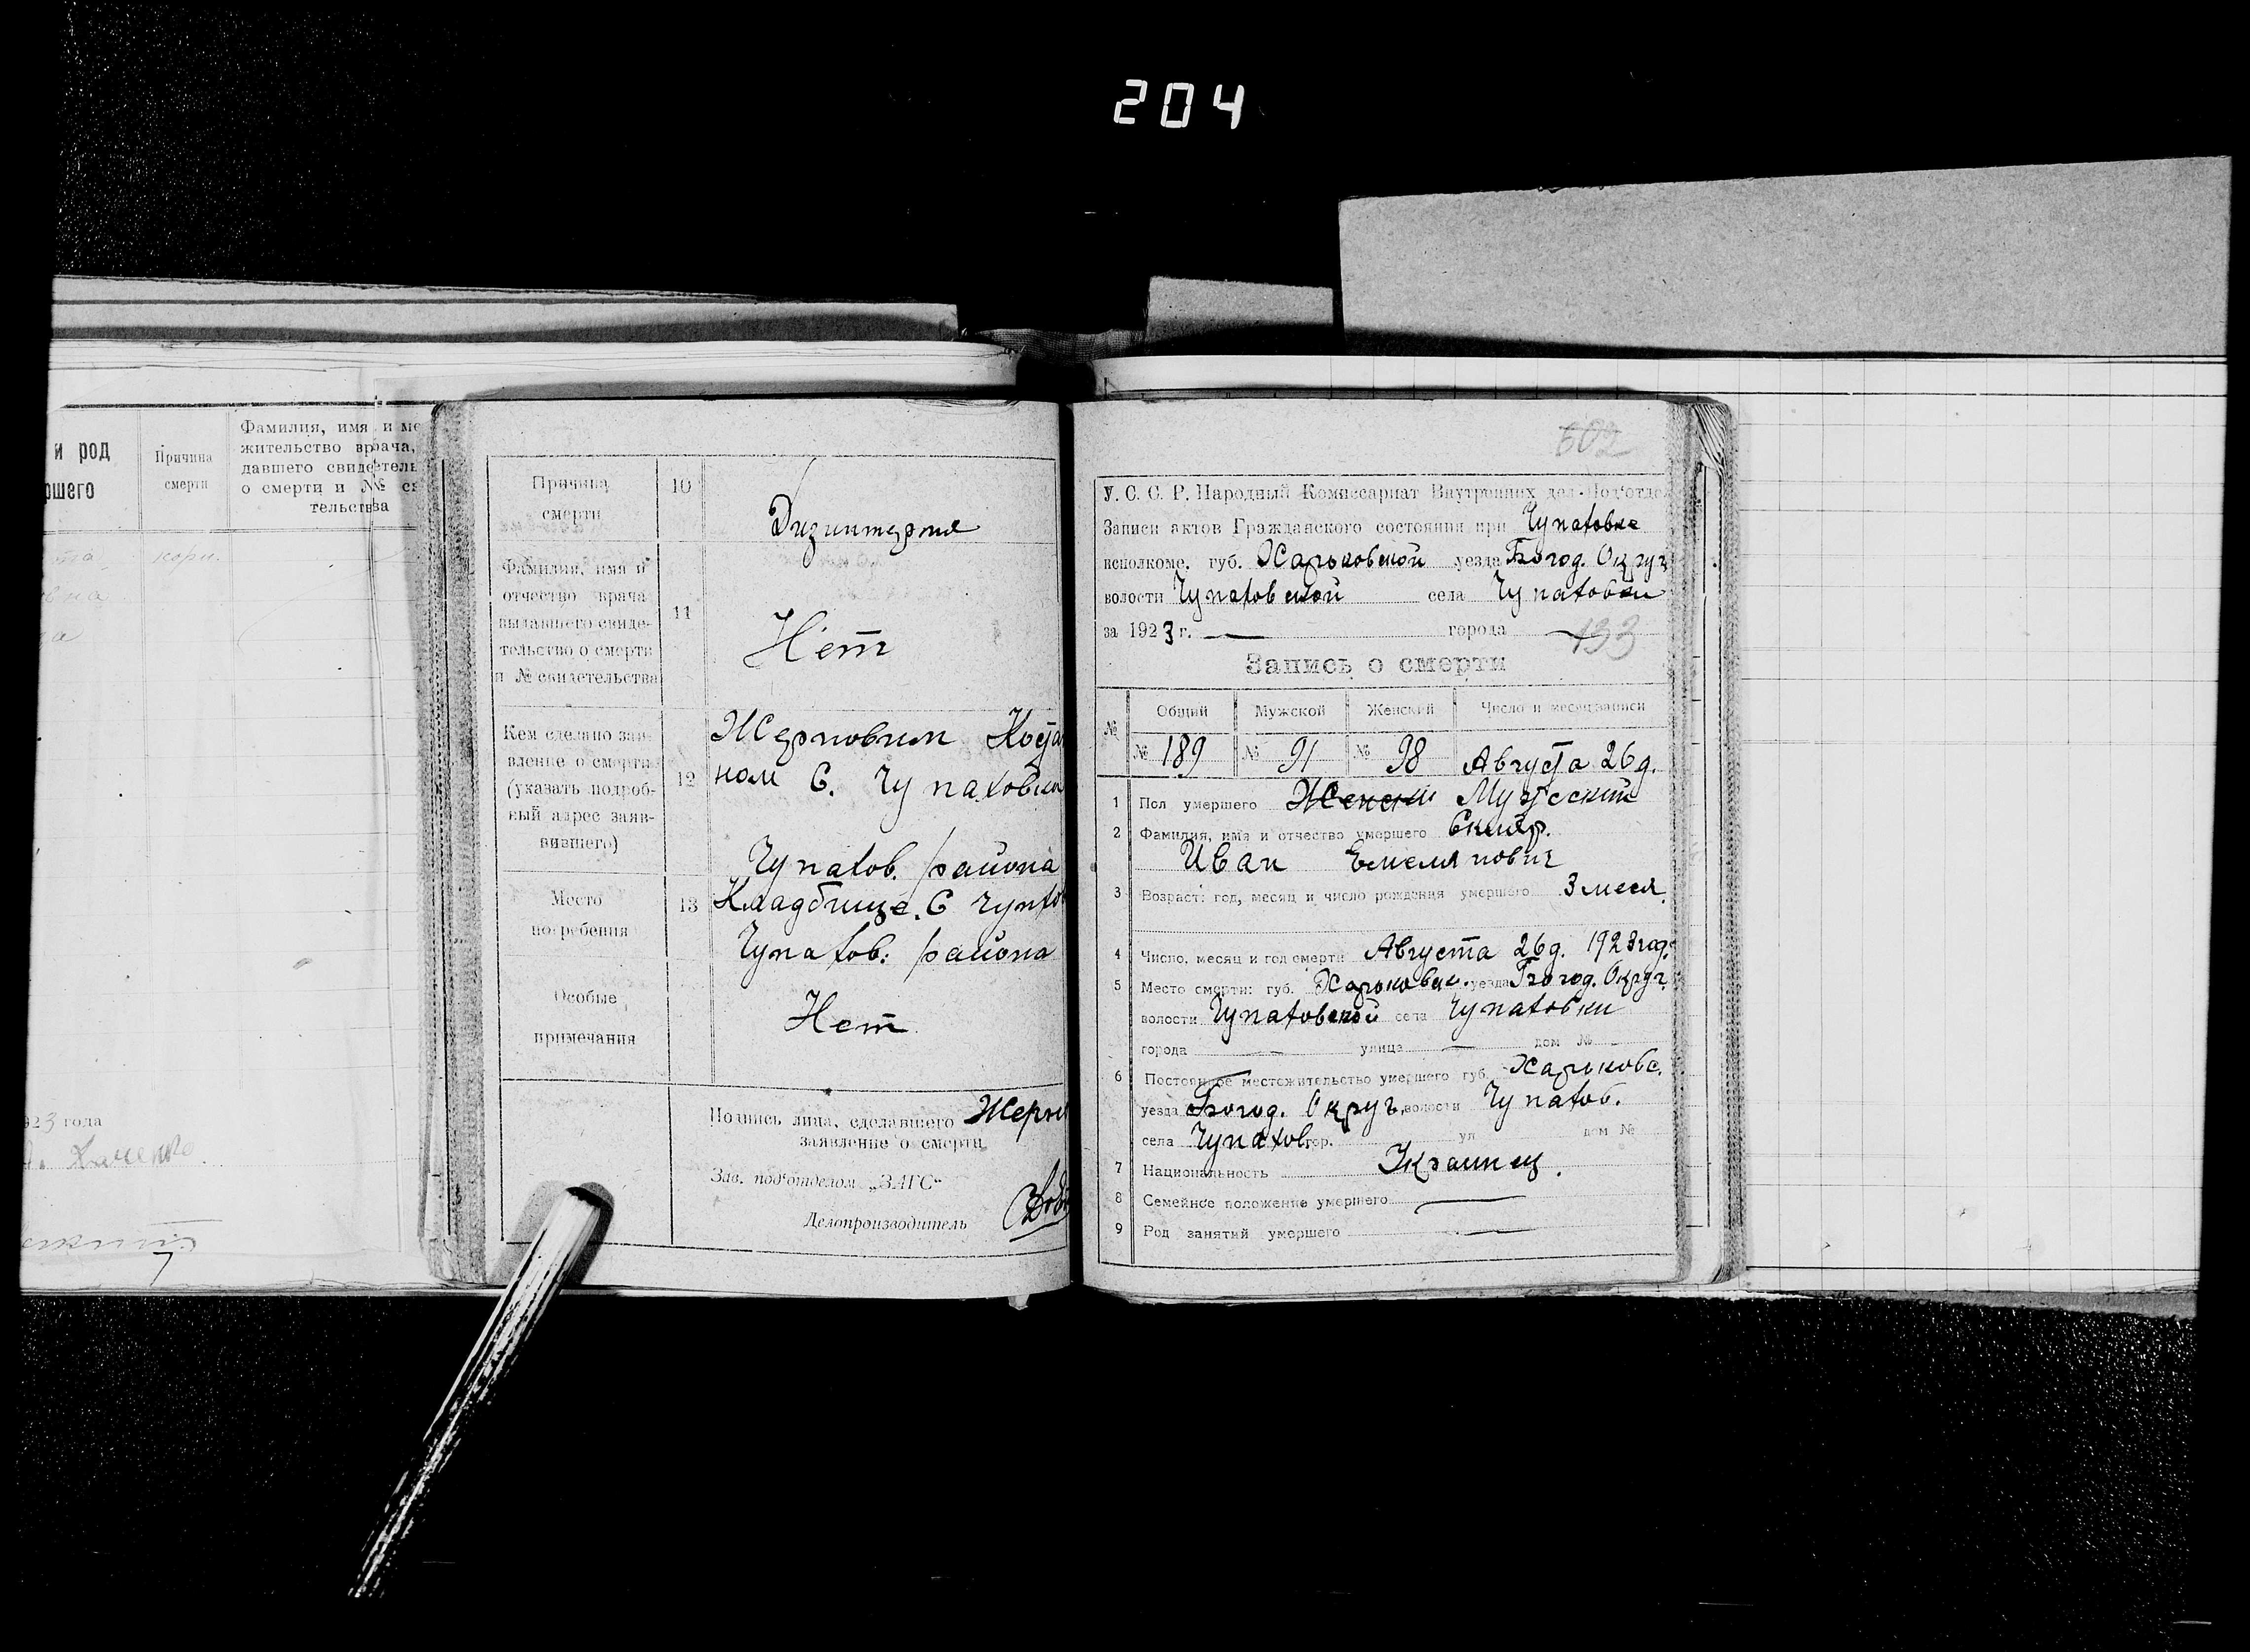 204
и род
ршего
Причина
смерти
Фамилия, имя и ме
жительство врача,
давшего свидетель
о смерти и № св
тельства
кори.
923 года
Причина
смерти
10
Дизинтерия
Фамилия, имя и
отчество врача
выдавшего свиде-
тельство о смерти
и № свидетельства
11
Нет
Кем сделано зая-
вление о смерти
(указать подроб-
ный адрес заяв-
вившего)
12
Жерновим
ном С. Чупаховки
Чупахов. района
Место
погребения
13
Кладбище. С Чупахо
Чупахов: района
Особые
примечания
Нет
Подпись лица, сделавшего
заявление о смерти
Жерн
Зав. под'отделом „ЗАГС“
Делопроизводитель
602
У. С. С. Р. Народный Комиссариат Внутренних дел-Под'отде
Записи актов Гражданского состояния при Чупаховке
исполкоме. губ. Харьковской уезда Богод. Округ
волости Чупаховской села Чупаховки
за 1923 г. — города 133
Запись о смерти
№ Общий Мужской Женский Число и месяц записи
№ 189 № 91 № 98 Августа 26 д.
1 Пол умершего Женски Мужеский
2 Фамилия, имя и отчество умершего
Иван Емелянович
3 Возраст: год, месяц и число рождения умершего 3 меся.
4 Число, месяц и год смерти Августа 26 д. 1923 год.
5 Место смерти: губ. Харьковск. уезда Богод. Округ.
волости Чупаховской села Чупаховки
города — улица — дом № —
6 Постоянное местожительство умершего губ. Харьковс.
уезда Богод. Округ, волости Чупахов.
села Чупахов. гор. ул дом №
7 Национальность Украинец.
8 Семейное положение умершего —
9 Род занятий умершего —